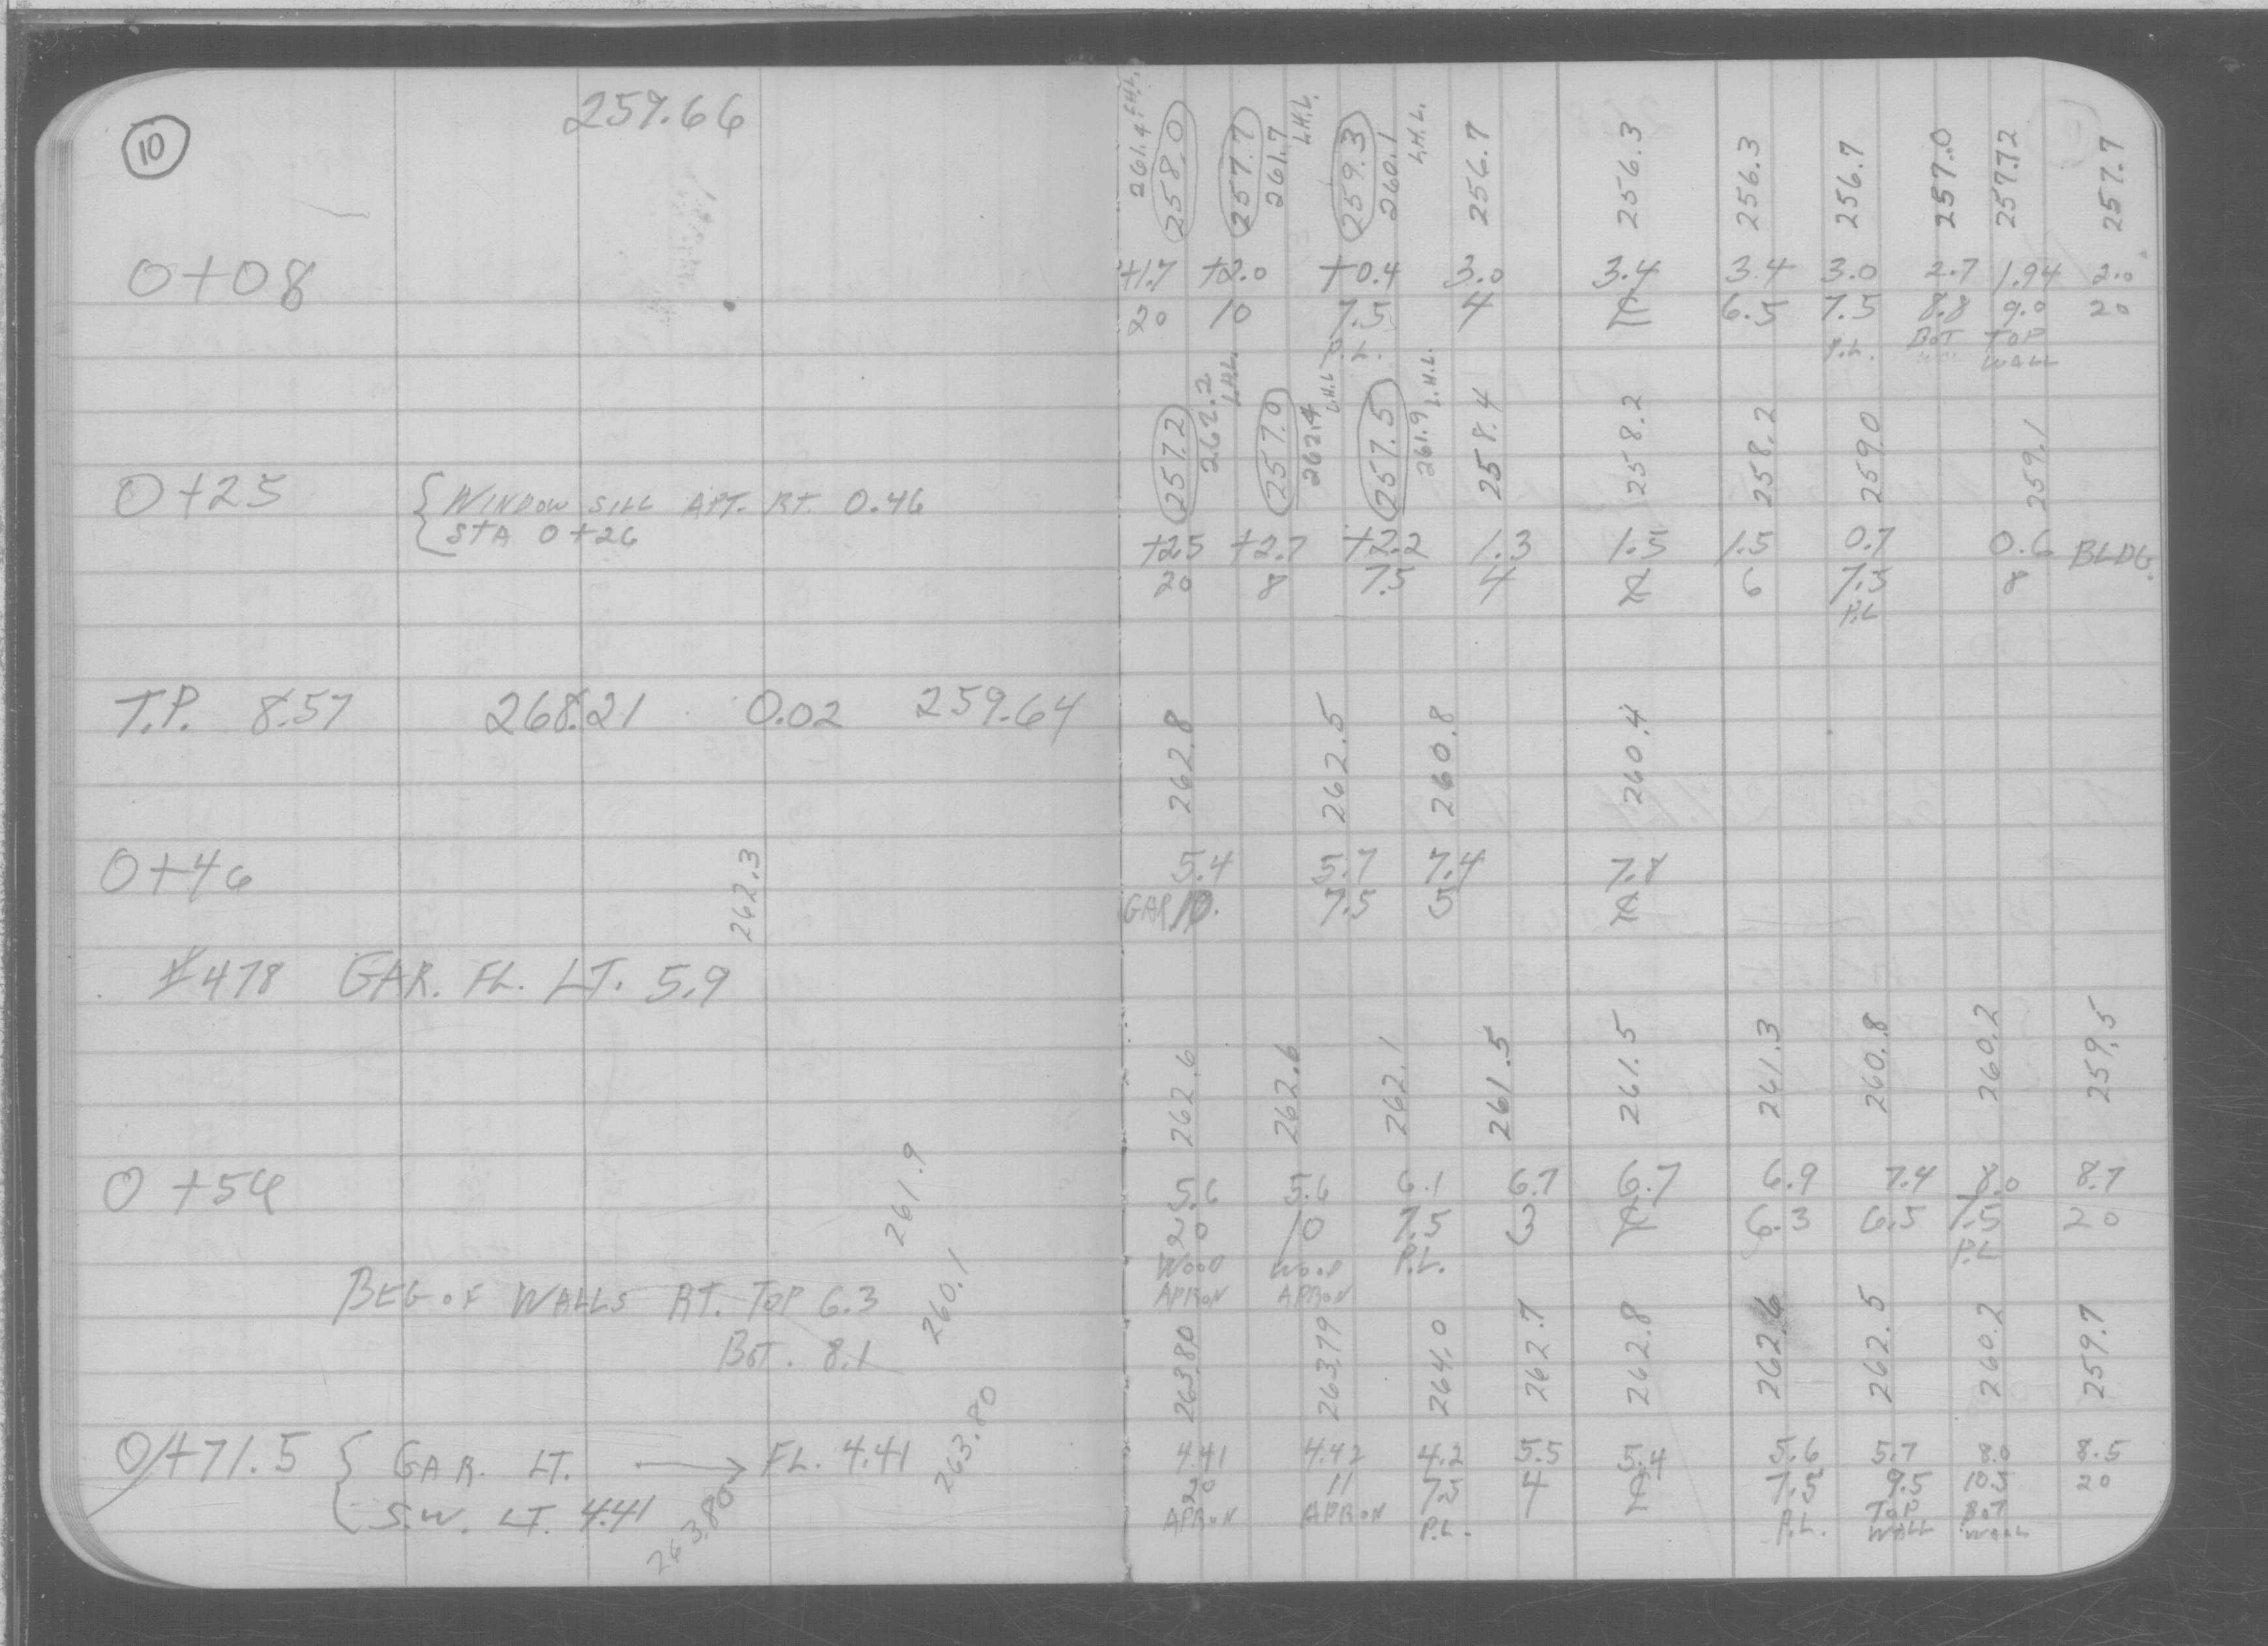 10
259.66
261.4 L.H.L. 258.0 257.7 261.7 L.H.L. 259.3 260.1 L.H.L. 256.7 256.3 256.3 256.7 257.0 257.72 257.7
0+08 +1.7 +2.0 +0.4 3.0 3.4 3.4 3.0 2.7 1.94 2.0
20 10 7.5 4 ℄ 6.5 7.5 8.8 9.0 20
P.L. P.L. BOT TOP
WALL
257.2 262.2 L.H.L. 257.0 262.4 L.H.L 257.5 261.9 L.H.L. 258.4 258.2 258.2 259.0 259.1
0+25 { WINDOW SILL APT. RT. 0.46
STA 0+26
+2.5 +2.7 +2.2 1.3 1.5 1.5 0.7 0.6 BLDG.
20 8 7.5 4 ℄ 6 7.5 8
P.L
T.P. 8.57 268.21 0.02 259.64
262.8 262.5 260.8 260.4
0+46 5.4 5.7 7.4 7.8
GAR 10. 7.5 5 ℄
262.3
#478 GAR. FL. LT. 5.9
262.6 262.6 262.1 261.5 261.5 261.3 260.8 260.2 259.5
0+54 5.6 5.6 6.1 6.7 6.7 6.9 7.4 8.0 8.7
20 10 7.5 3 ℄ 6.3 6.5 7.5 20
WOOD WOOD P.L. P.L
APRON APRON
261.9
BEG OF WALLS RT. TOP 6.3
260.1
BOT. 8.1
263.80 263.79 264.0 262.7 262.8 262.6 262.5 260.2 259.7
0+71.5 { GAR. LT. → FL. 4.41 263.80
S.W. LT. 4.41 263.80
4.41 4.42 4.2 5.5 5.4 5.6 5.7 8.0 8.5
20 11 7.5 4 ℄ 7.5 9.5 10.5 20
APRON APRON P.L. P.L. TOP WALL BOT WALL